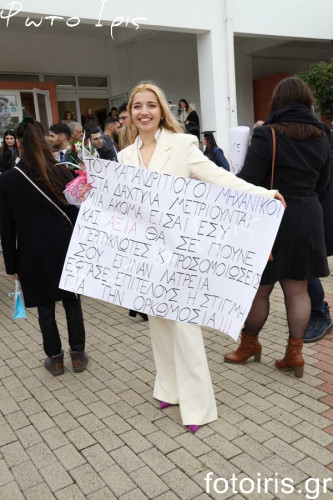 Φωτο Ίρις
ΤΟΥ ΚΑΠΑΝΔΡΙΤΙΟΥ ΟΙ ΜΗΧΑΝΙΚΟΙ
ΣΤΑ ΔΑΧΤΥΛΑ ΜΕΤΡΙΟΥΝΤΑΙ
ΜΙΑ ΑΚΟΜΑ ΕΙΣΑΙ ΕΣΥ
ΚΑΙ ΑΞΙΑ ΘΑ ΣΕ ΠΟΥΝΕ
ΥΠΕΡΠΥΚΝΩΤΕΣ & ΠΡΟΣΟΜΟΙΩΣΕΙΣ
ΣΟΥ ΕΓΙΝΑΝ ΛΑΤΡΕΙΑ
ΕΦΤΑΣΕ ΕΠΙΤΕΛΟΥΣ Η ΣΤΙΓΜΗ
ΓΙΑ ΤΗΝ ΟΡΚΩΜΟΣΙΑ
fotoiris.gr